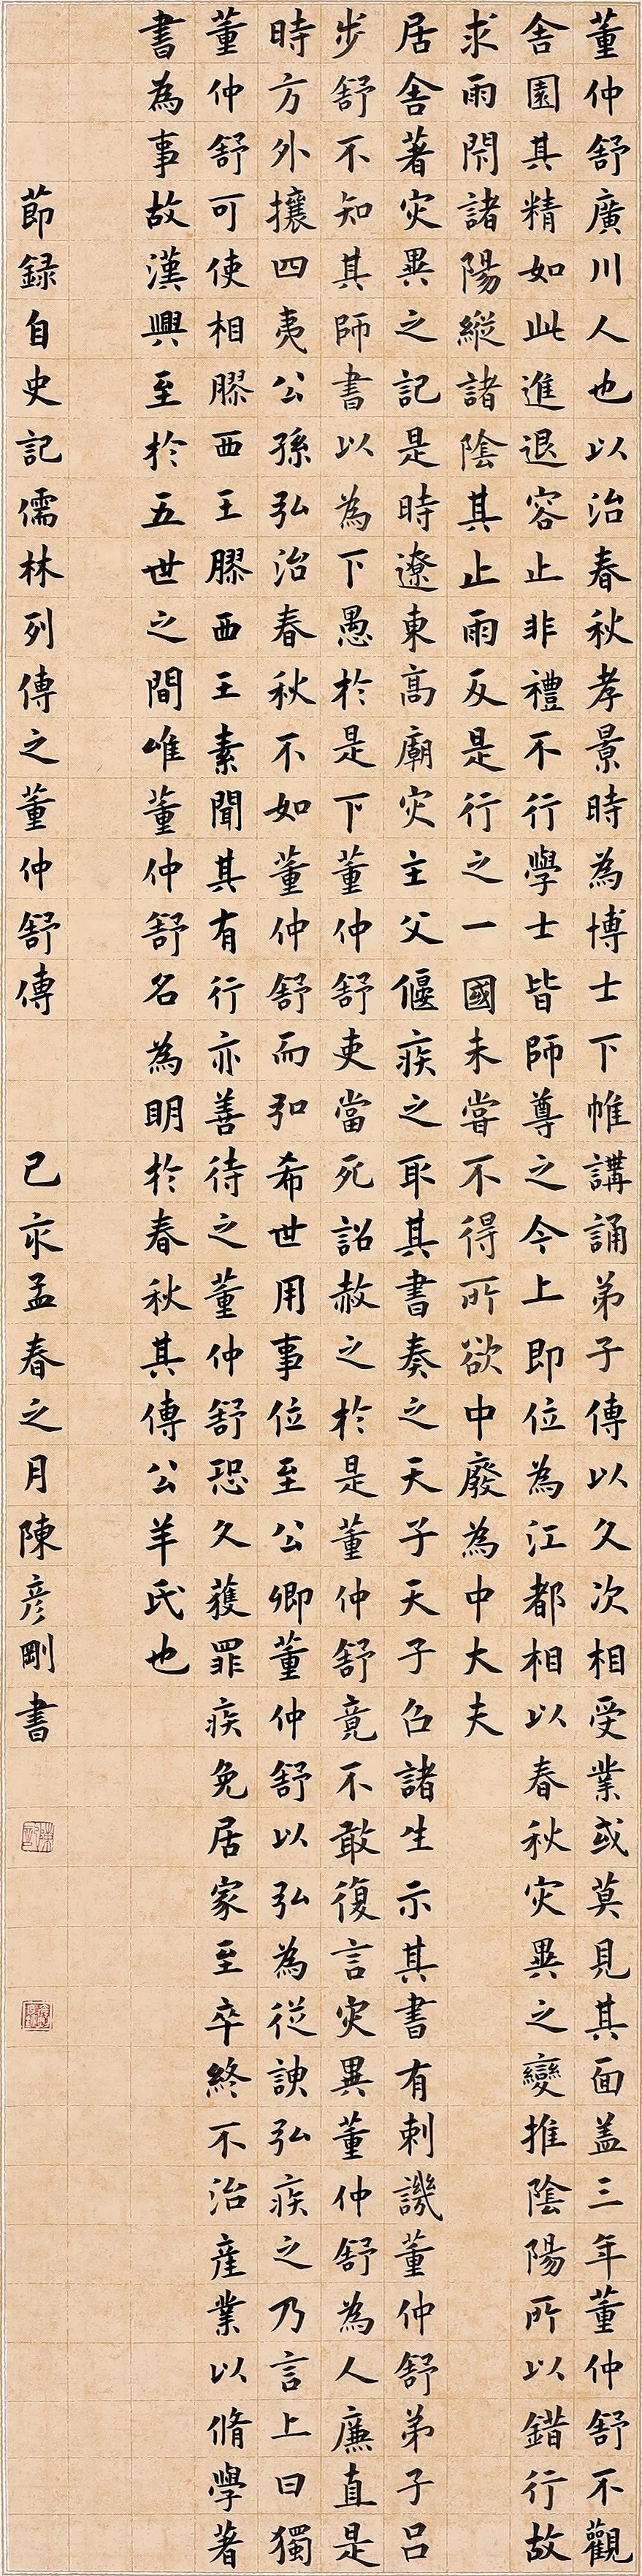 董仲舒廣川人也以治春秋孝景時為博士下帷講誦弟子傳以久次相受業或莫見其面盖三年董仲舒不觀
舍園其精如此進退容止非禮不行學士皆師尊之今上即位為江都相以春秋灾異之變推陰陽所以錯行故
求雨閇諸陽縱諸陰其止雨反是行之一國未嘗不得所欲中廢為中大夫
居舍著灾異之記是時遼東高廟灾主父偃疾之取其書奏之天子天子召諸生示其書有刺譏董仲舒弟子呂
步舒不知其師書以為下愚於是下董仲舒吏當死詔赦之於是董仲舒竟不敢復言灾異董仲舒為人廉直是
時方外攘四夷公孫弘治春秋不如董仲舒而弘希世用事位至公卿董仲舒以弘為從諛弘疾之乃言上曰獨
董仲舒可使相膠西王膠西王素聞其有行亦善待之董仲舒恐久獲罪疾免居家至卒終不治產業以脩學著
書為事故漢興至於五世之間唯董仲舒名為明於春秋其傳公羊氏也
節録自史記儒林列傳之董仲舒傳 己亥孟春之月陳彦剛書